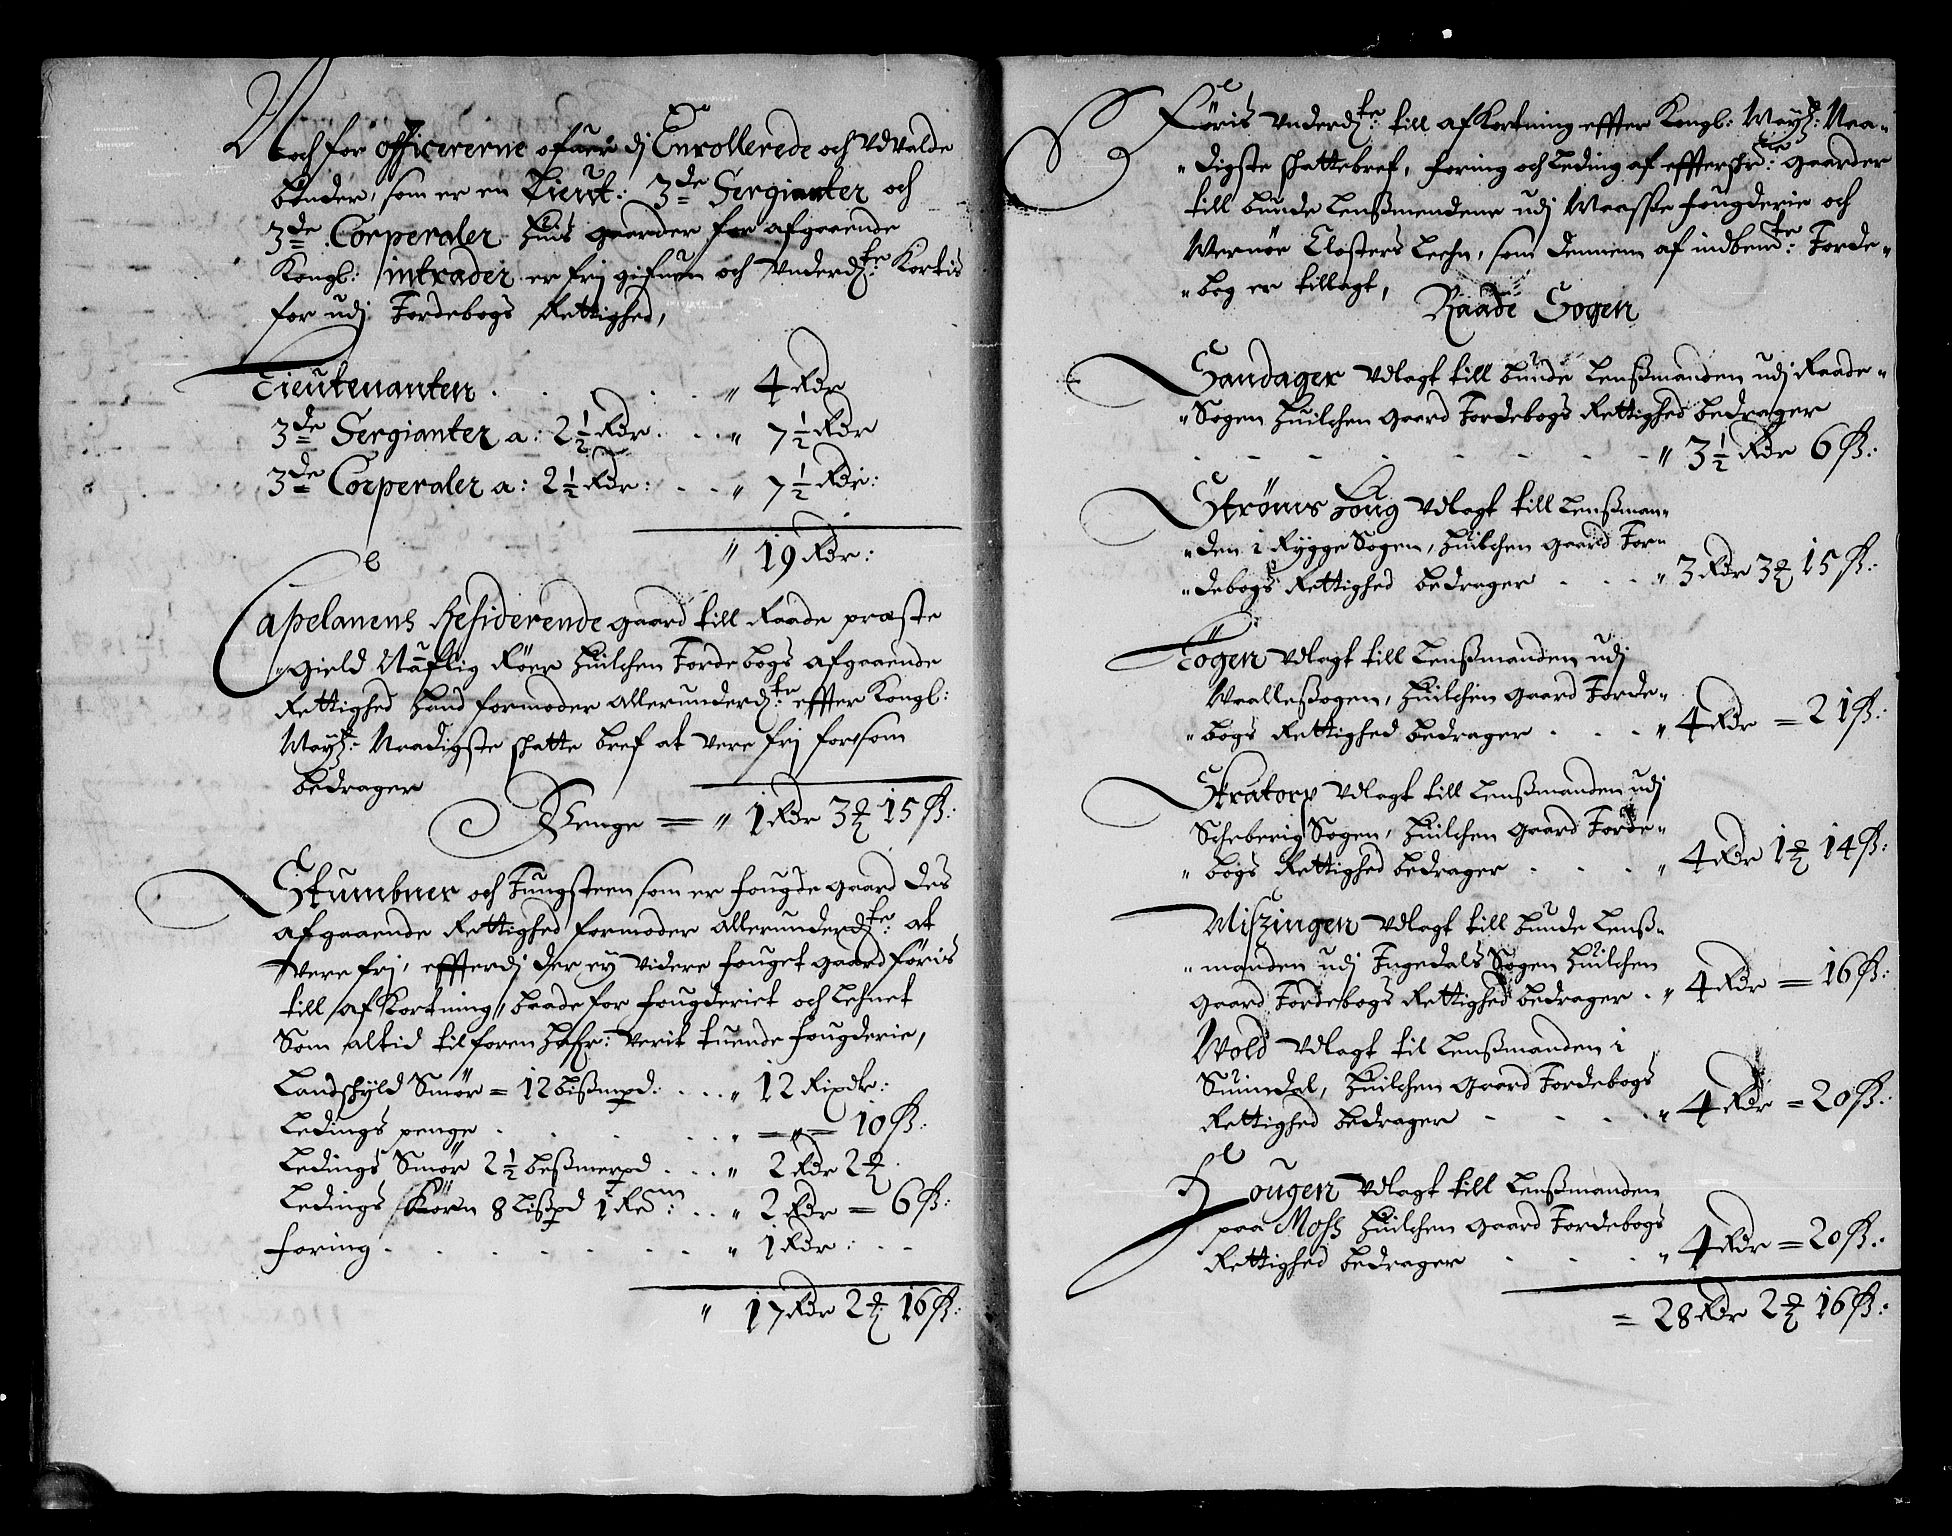 och for officererne ofuer dj Enrollerede och Vdvalde
bönder, som er en Lieut: 3de Sergianter och
3de Corperaler Huis gaarder for afgaaende
Kongl: intrader er frj gifuen och Vnderdte: Kortis
for udj Jordebogs Rettighed,
Lieutenanten . . . . „ 4 Rdr
3de Sergianter a: 2½ Rdr . . . „ 7½ Rdr
3de Corperaler a: 2½ Rdr: . . „ 7½ Rdr:
„ 19 Rdr:
Capelanens Residerende gaard till Raade præste
„gield Nafflig Röer Huilchen Jordebogs afgaaende
Rettighed Hand formoder allerunderdte: effter Kongl:
Maytz: Naadigste schatte bref at vere frj for som
bedrager
Penge = „ 1 Rdr 3 ₰ 15 ß:
Stumbner och Tungsteen som er fougde gaard des
afgaaende Rettighed formoder allerunderdte: at
vere frj, effterdj der ey videre fouget gaard föris
till af Kortning, baade for fougderiet och Lehnet
Som altid tilforen Hafr: verit tuende fougderie,
Landschyld Smör = 12 bißmrpd: . . . „ 12 Rixdr:
Ledings penge . . . . „ = „ = 10 ß:
Ledings Smör 2½ beßmerpd . . . „ 2 Rdr 2 ₰
Ledings Korn 8 Lißpd 1 Remm: . . „ 2 Rdr = 6 ß:
foring . . . . . . „ 1 Rdr: . .
„ 17 Rdr 2 ₰ 16 ß:
Föris Vnderdte: till af Kortning effter Kongl: Maytz: Naa„
„digste schattebref, foring och Leding af effterschr:ne gaarder
till bunde Lenßmendene udj Maasse fougderie och
Wernöe Closters Leehn, som dennem af indbemte: Jorde„
„bog er tillagt,
Raade Sogen
Sandager Vdlagt till bunde Lenßmanden udj Raade„
„Sogen Huilchen gaard Jordebogs Rettighed bedrager
. . . . . . „ 3½ Rdr 6 ß:
Ströms Houg Vdlagt till Lenßman„
„den i Rygge Sogen, Huilchen gaard Jor„
„debogs Rettighed bedrager . . . „ 3 Rdr 3 ₰ 15 ß:
Togen Vdlagt till Lenßmanden udj
Waalleßogen, Huilchen gaard Jorde„
„bogs Rettighed bedrager . . . „ 4 Rdr = 21 ß:
Stratorp Vdlagt till Lenßmanden udj
Scheberig Sogen, Huilchen gaard Jorde„
„bogs Rettighed bedrager . . . „ 4 Rdr 1 ₰ 14 ß:
Miszingen Vdlagt till bunde Lenß„
„manden udj Ingedals Sogen Huilchen
gaard Jordebogs Rettighed bedrager . „ 4 Rdr = 16 ß:
Wold Vdlagt til Lenßmanden i
Suindal, Huilchen gaard Jordebogs
Rettighed bedrager . . . . „ 4 Rdr = 20 ß:
Hougen Vdlagt till Lenßmanden
paa Mosz Huilchen gaard Jordebogs
Rettighed bedrager . . . „ 4 Rdr = 20 ß:
= 28 Rdr 2 ₰ 16 ß: